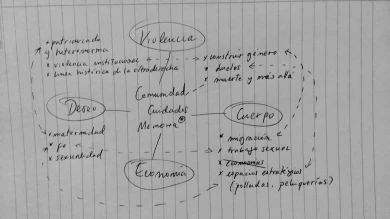 Violencia
* patriarcado
y heteronorma
* violencia institucional
* línea histórica de la ultraderecha
* construir género
* duelos
* muerte y más allá
Comunidad
Cuidados
Memoria
Deseo
Cuerpo
* maternidad
*
* sexualidad
* migración
* trabajo sexual
* economías
* espacios estratégicos
(polladas, peluquerías)
Economía